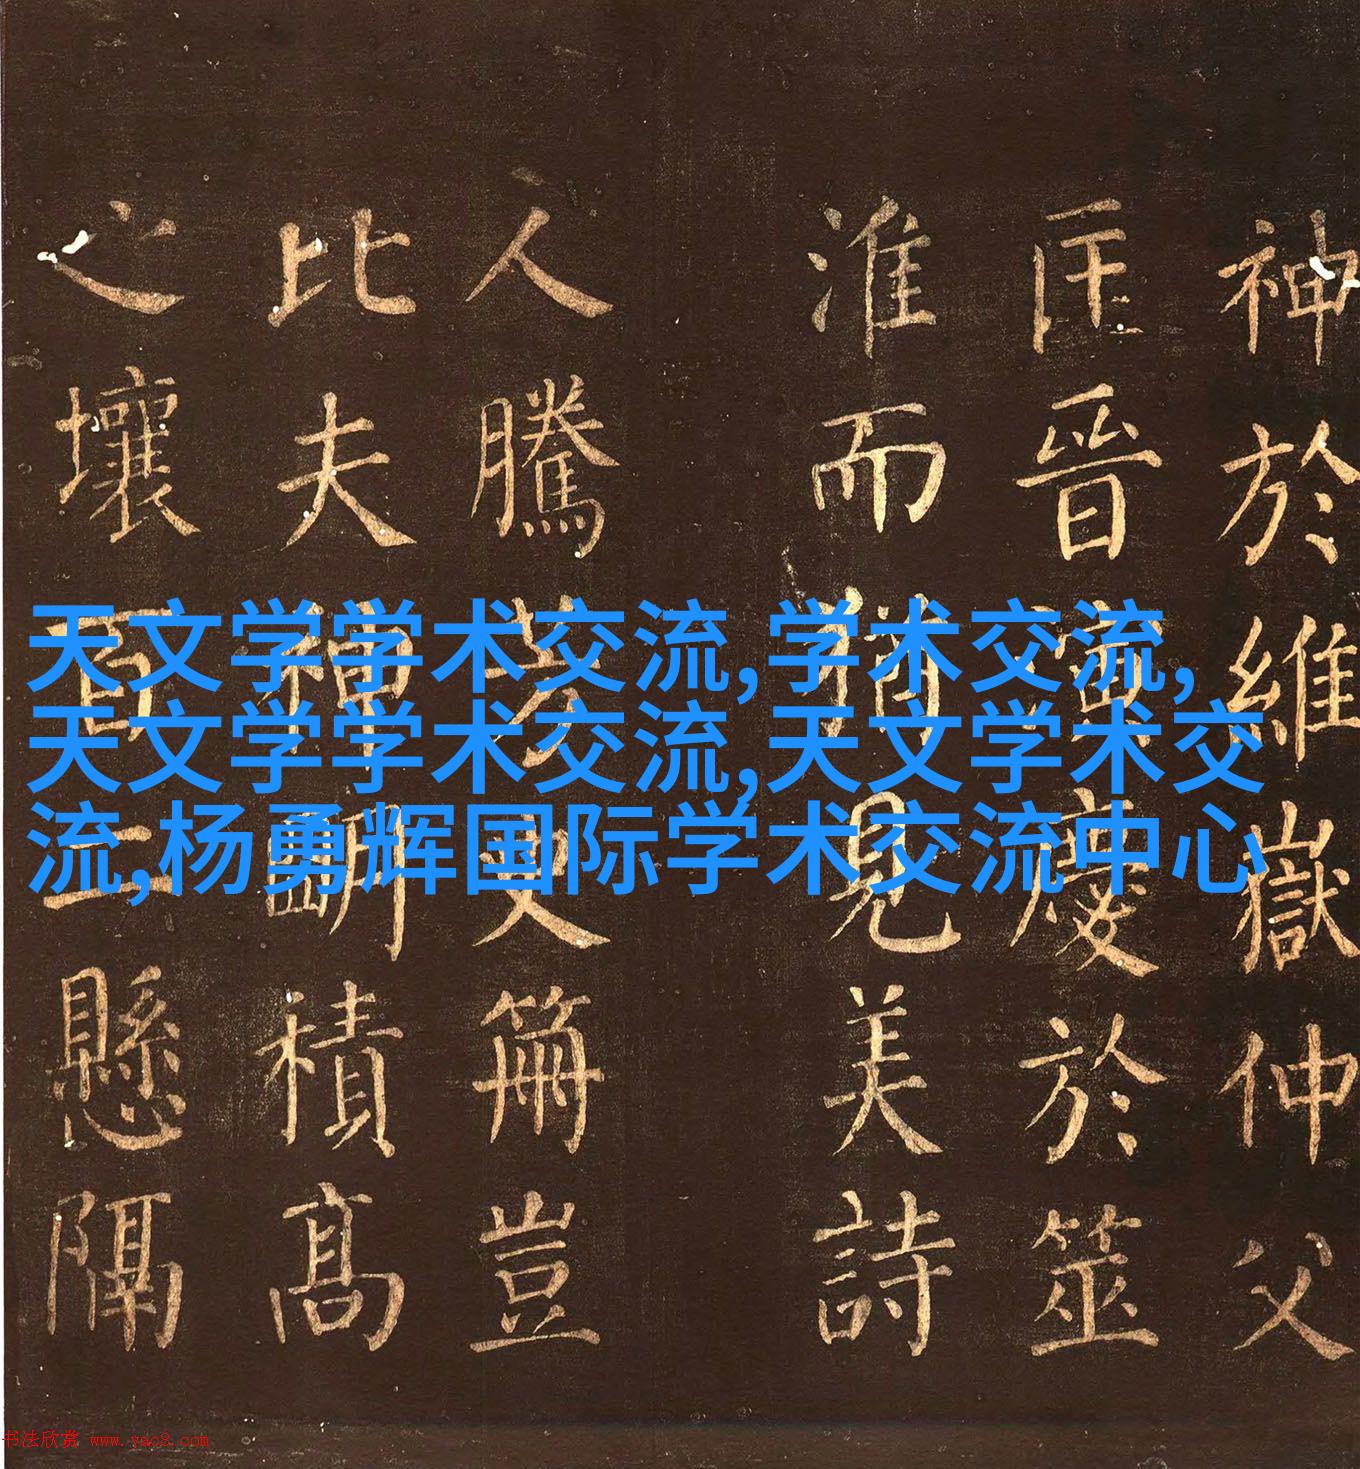 神於維嶽仲父
匡晉演慶於筮
淮而猶見美詩
人騰芳史笧豈
比夫神積高
之壤百二懸隔
天文学学术交流,学术交流,
天文学学术交流,天文学术交
流,杨勇辉国际学术交流中心
书法欣赏 www.yac8.com